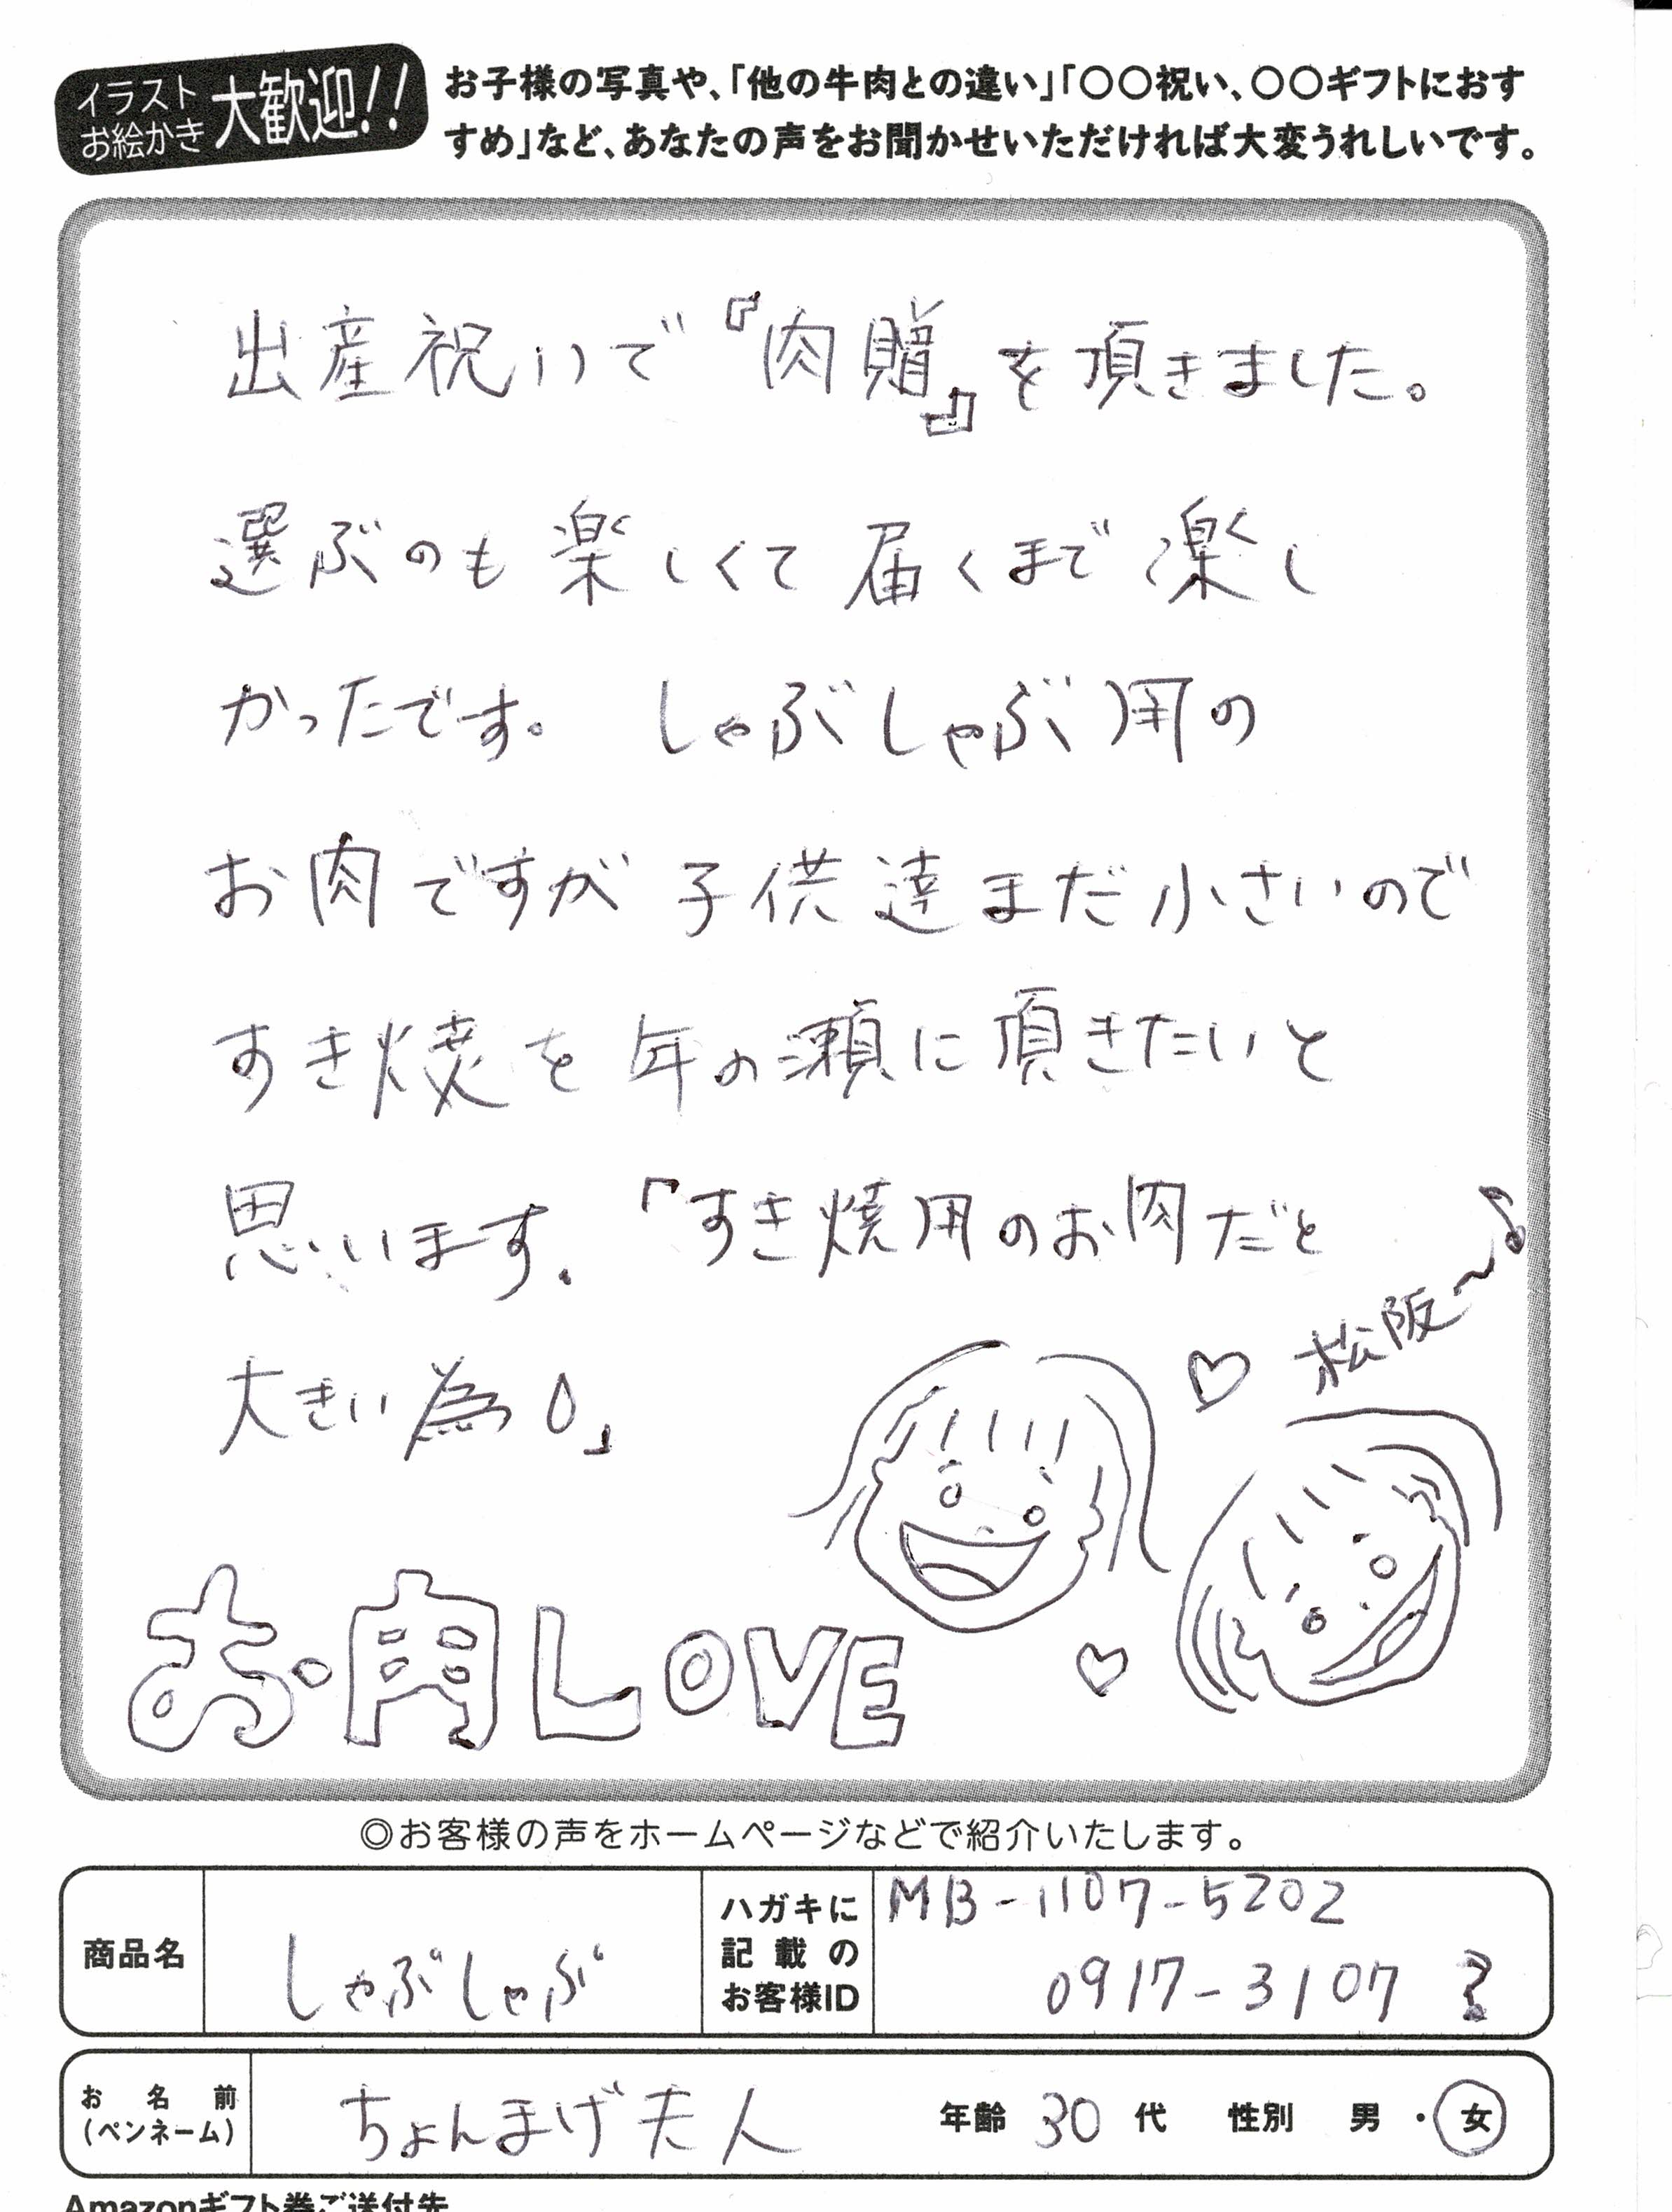 イラスト
お絵かき
大歓迎!!
お子様の写真や、「他の牛肉との違い」「〇〇祝い、〇〇ギフトにおす
すめ」など、あなたの声をお聞かせいただければ大変うれしいです。
出産祝いで『肉贈』を頂きました。
選ぶのも楽しくて届くまで楽し
かったです。 しゃぶしゃぶ用の
お肉ですが子供達まだ小さいので
すき焼を年の瀬に頂きたいと
思います。「すき焼用のお肉だと
大きい為0」
松阪〜♪
お肉LOVE
◎お客様の声をホームページなどで紹介いたします。
商品名 しゃぶしゃぶ
ハガキに
記載の
お客様ID
MB-1107-5202
0917-3107 ?
お名前
(ペンネーム)
ちょんまげ夫人
年齢 30 代 性別 男・女
Amazonギフト券ご送付先